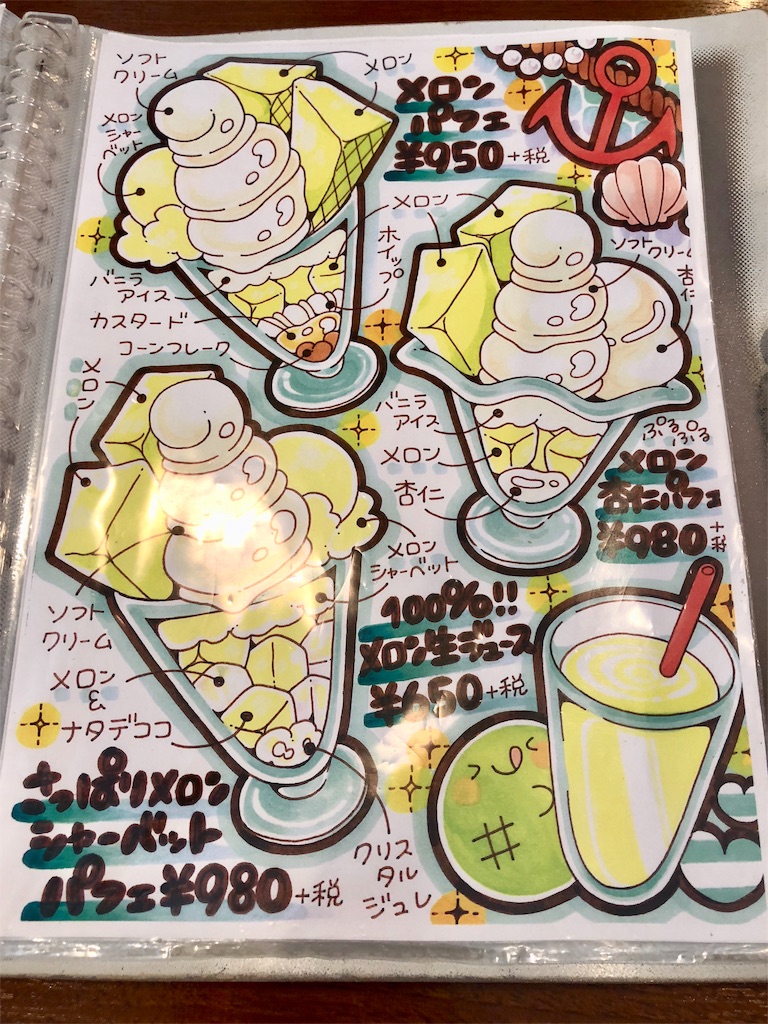 ソフト
クリーム
メロン
メロン
シャー
ベット
メロン
パフェ
¥950+税
バニラ
アイス
カスタード
コーンフレーク
ホイップ
メロン
ソフトクリーム
杏仁
バニラ
アイス
メロン
杏仁
ぷるぷる
メロン
の
杏仁パフェ
¥980+税
メロン
ソフト
クリーム
メロン
&
ナタデココ
メロン
シャーベット
クリス
タル
ジュレ
さっぱりメロン
シャーベット
パフェ¥980+税
100%!!
メロン生ジュース
¥650+税